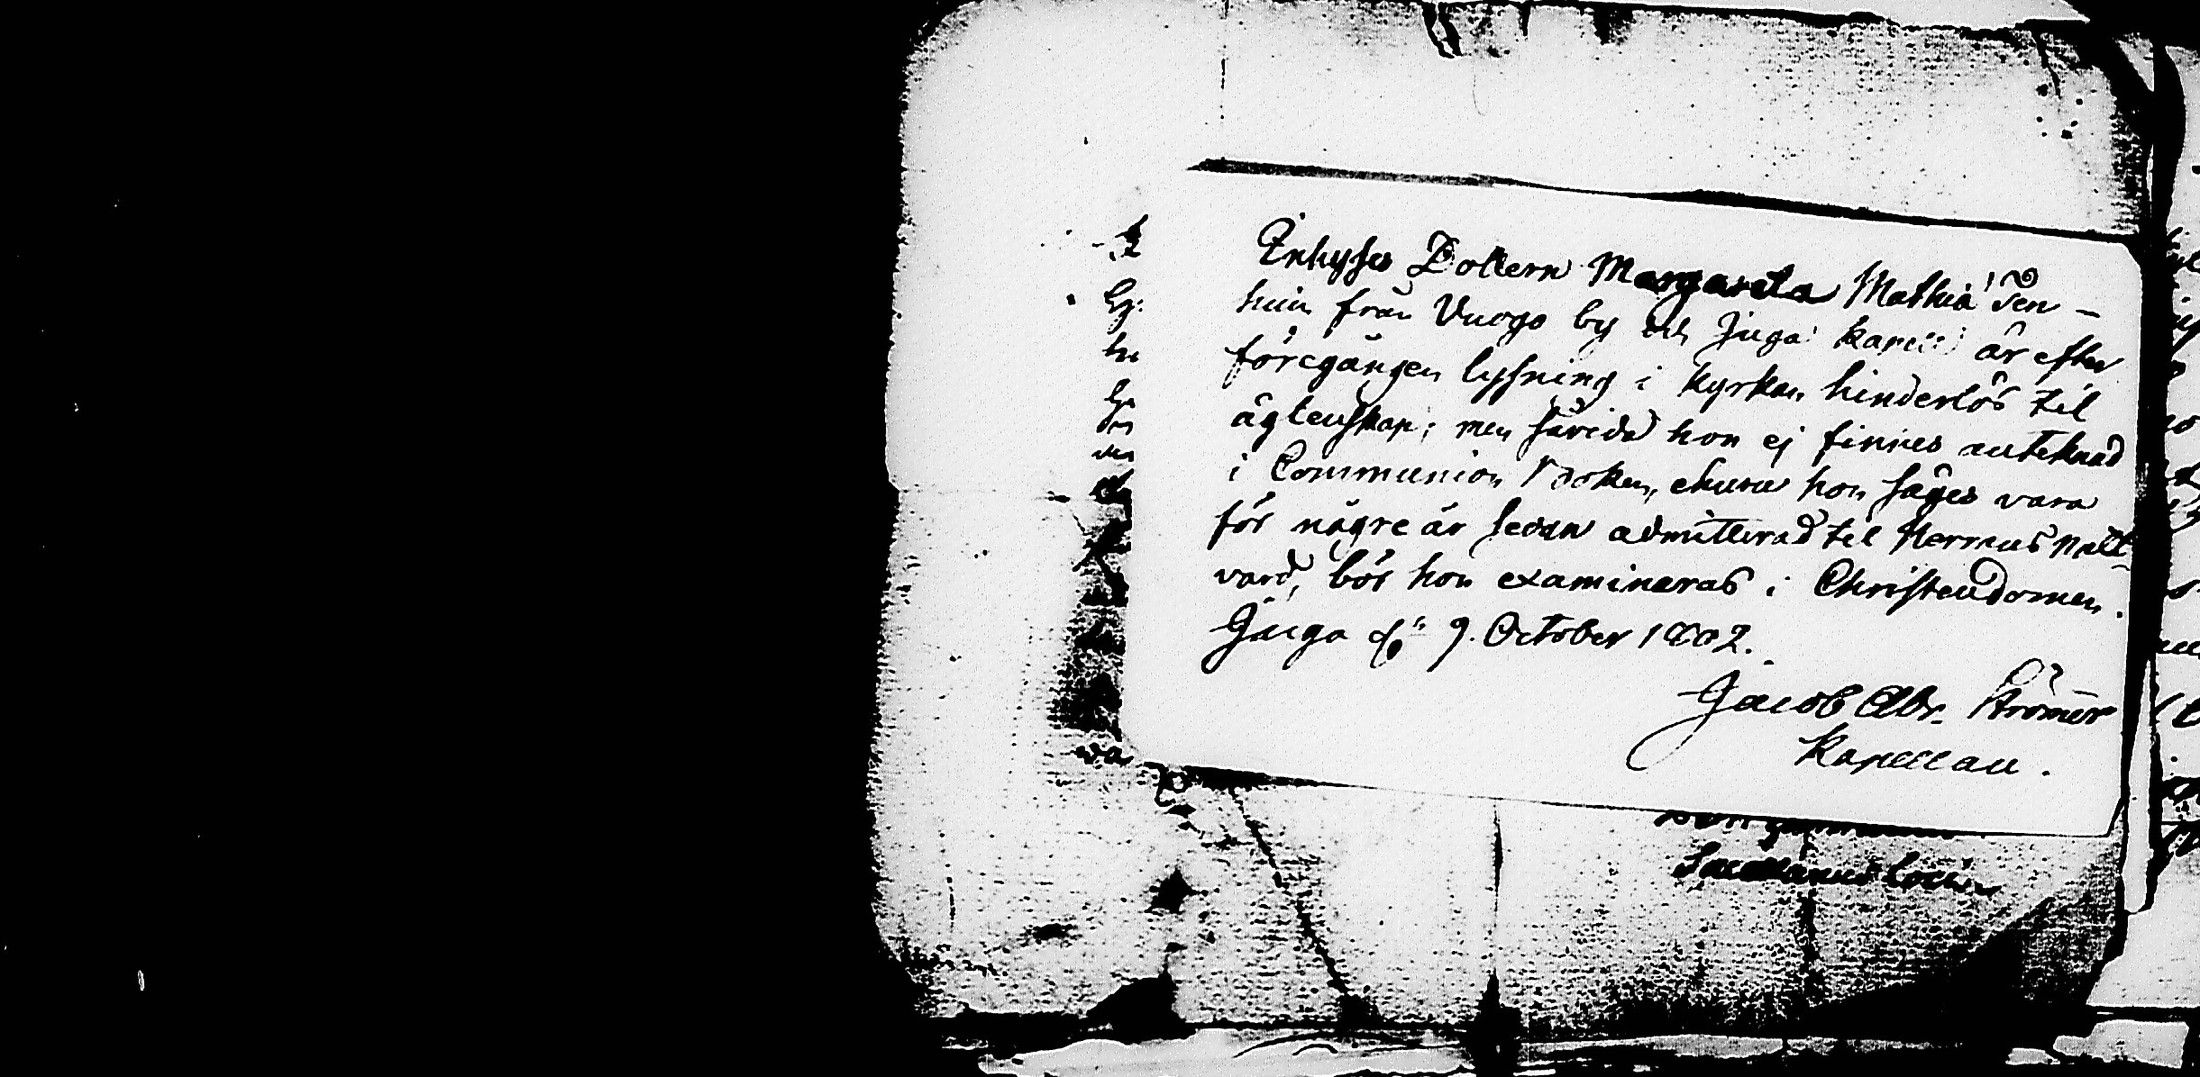 Inhyses Dottern Margareta Mathiæ Pen-
huin från Vuogo by och Juga kapell är efter
föregången lysning i kyrkan hinderlös til
ägtenskap; men såvida hon ej finnes anteknad
i Communion Boken, ehuru hon säges vara
för någre år sedan admitterad til Herrans natt
vard, bör hon examineras i Christendomen.
Juga d. 9. October 1802.
Jacob Abr. Strömer
Kapellan.
Sacellanus loci